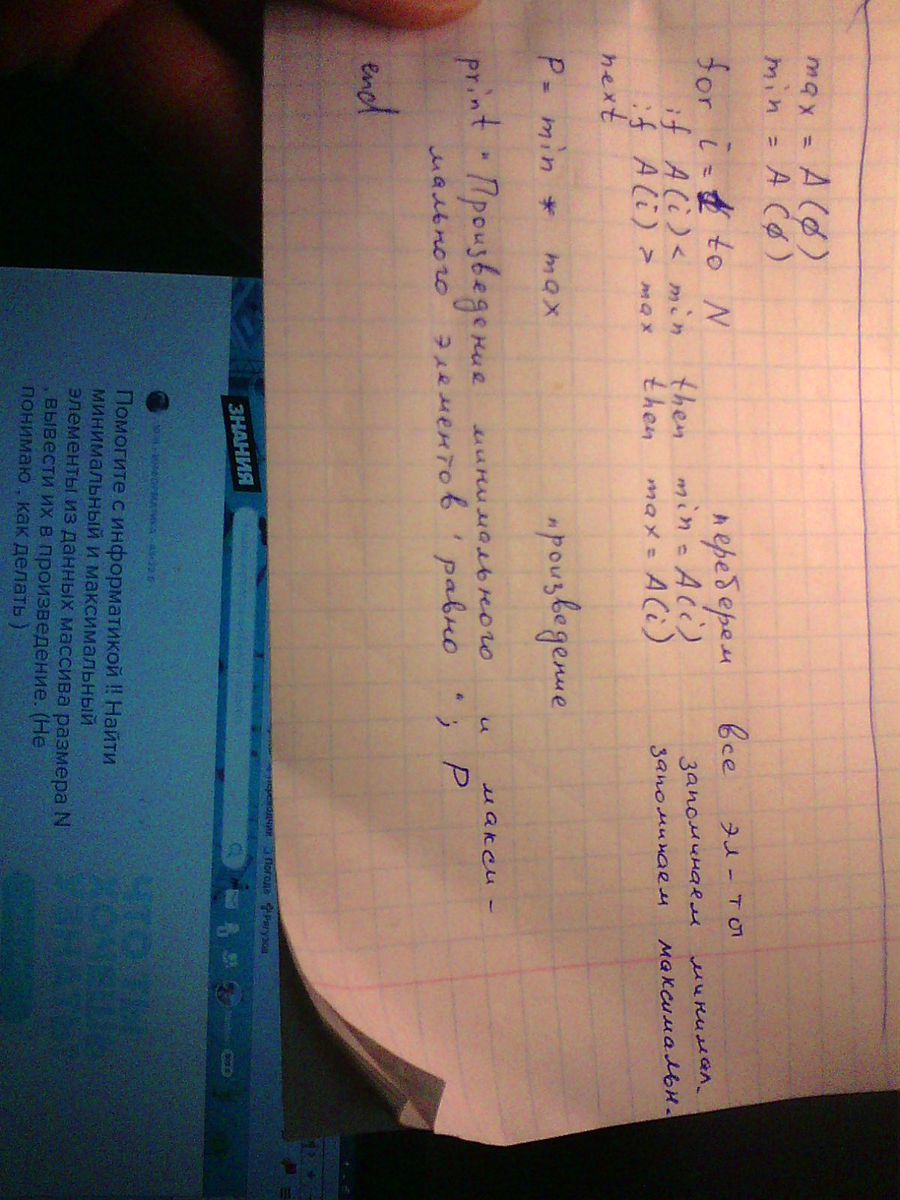 max = A(0)
min = A(0)
for i = to N переберем все эл-ты
if A(i) < min then min = A(i) запоминаем минимал.
if A(i) > max then max = A(i) запоминаем максимальн.
next
P = min * max произведение
print "Произведение минимального и макси-
мального элементов равно "; P
end
ЗНАНИЯ
Помогите с информатикой !! Найти
минимальный и максимальный
элементы из данных массива размера N
, вывести их в произведение. (Не
понимаю , как делать )
Погода